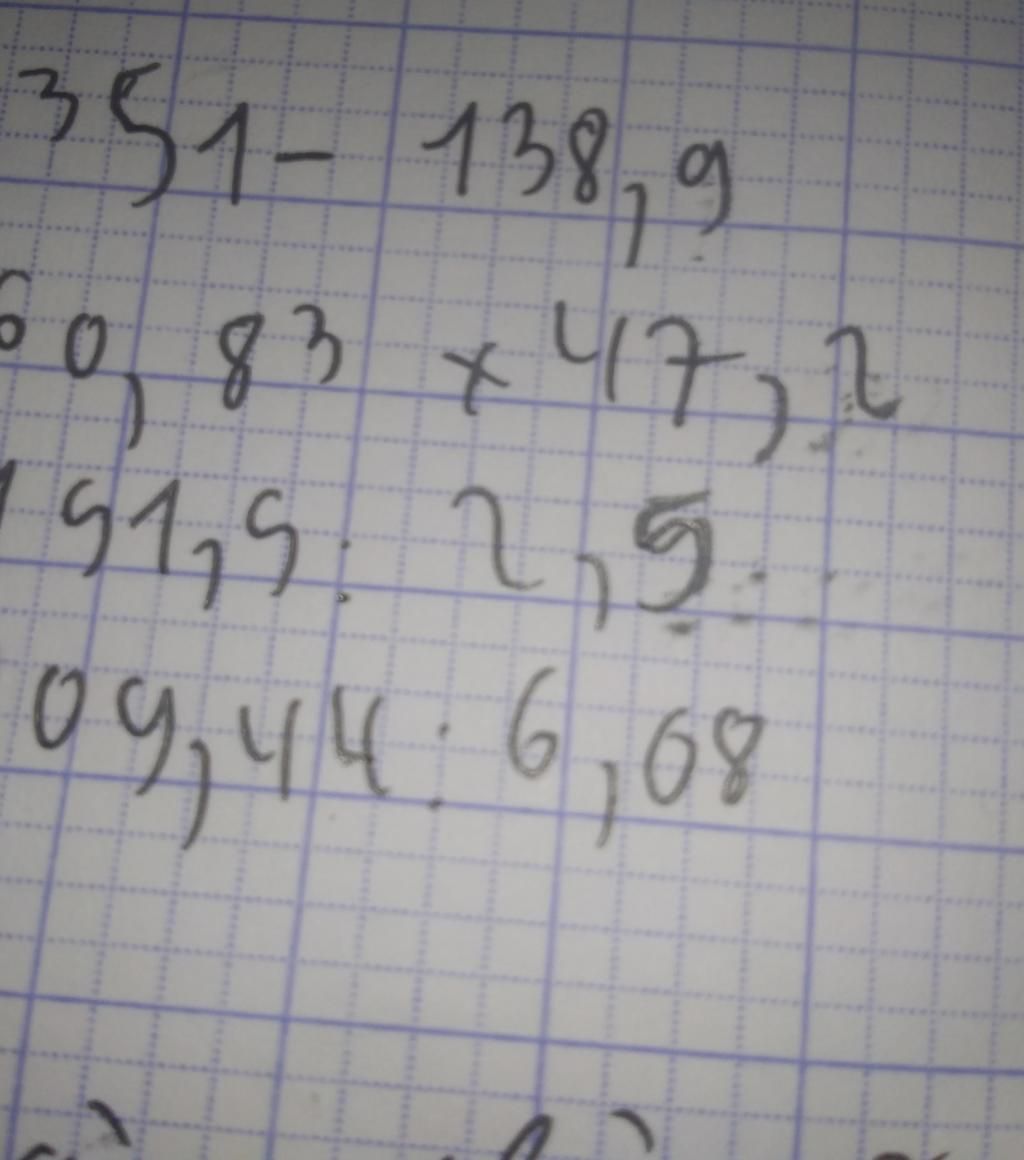 351 - 138,9
60,83 x 47,2
151,5 : 2,5
09,44 : 6,08